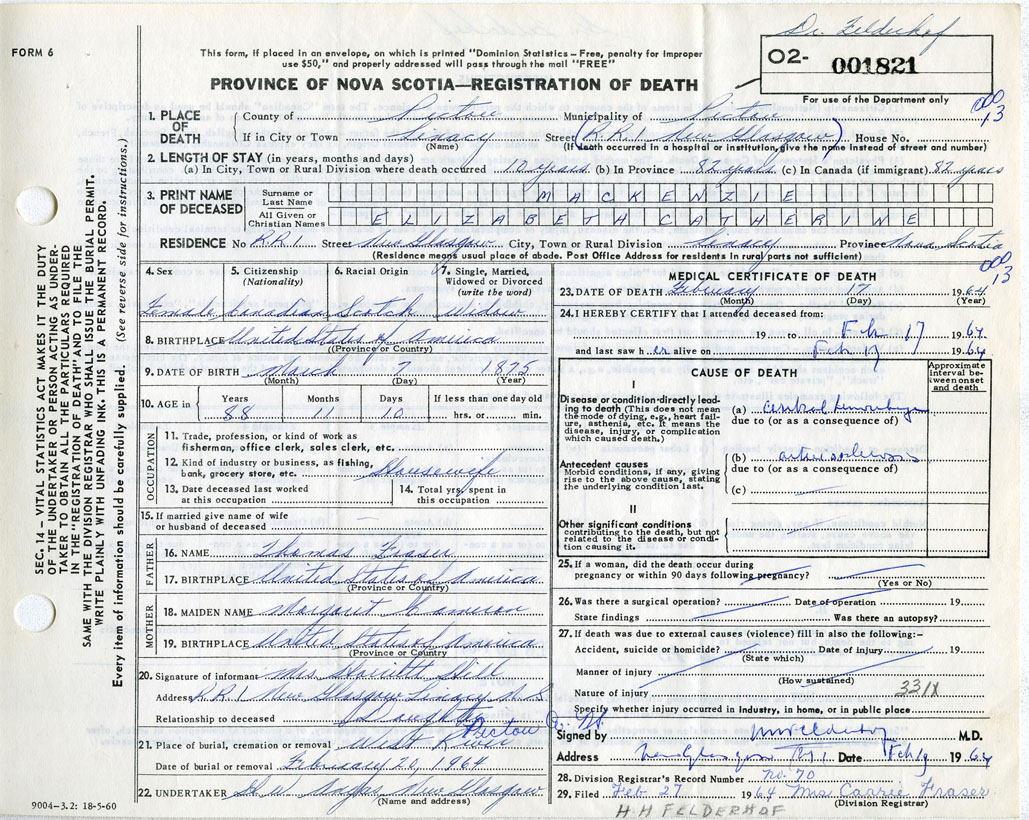 Dr. Felderhof
FORM 6
This form, if placed in an envelope, on which is printed "Dominion Statistics – Free, penalty for improper
use $50," and properly addressed will pass through the mail "FREE"
PROVINCE OF NOVA SCOTIA—REGISTRATION OF DEATH
02- 001821
For use of the Department only
000
13
1. PLACE OF DEATH
County of Pictou Municipality of Pictou
If in City or Town Linacy Street (R.R.1 New Glasgow) House No.
(Name) (If death occurred in a hospital or institution, give the name instead of street and number)
2. LENGTH OF STAY (in years, months and days)
(a) In City, Town or Rural Division where death occurred 12 years (b) In Province 82 years (c) In Canada (if immigrant) 82 years
3. PRINT NAME OF DECEASED
Surname or Last Name MACKENZIE
All Given or Christian Names ELIZABETH CATHERINE
RESIDENCE No R.R.1 Street New Glasgow City, Town or Rural Division Linacy Province Nova Scotia
(Residence means usual place of abode. Post Office Address for residents in rural parts not sufficient)
000
13
4. Sex 5. Citizenship (Nationality) 6. Racial Origin 7. Single, Married, Widowed or Divorced (write the word)
Female Canadian Scotch Widow
8. BIRTHPLACE United States of America
(Province or Country)
9. DATE OF BIRTH March 7 1875
(Month) (Day) (Year)
10. AGE in Years Months Days If less than one day old
88 11 10 hrs. or min.
OCCUPATION
11. Trade, profession, or kind of work as
fisherman, office clerk, sales clerk, etc.
12. Kind of industry or business, as fishing,
bank, grocery store, etc. Housewife
13. Date deceased last worked
at this occupation
14. Total yrs. spent in
this occupation
15. If married give name of wife
or husband of deceased
FATHER
16. NAME Thomas Fraser
17. BIRTHPLACE United States of America
(Province or Country)
MOTHER
18. MAIDEN NAME Margaret Cameron
19. BIRTHPLACE United States of America
(Province or Country)
20. Signature of informant Mrs Hill
Address R.R.1 New Glasgow Linacy N.S.
Relationship to deceased (Daughter)
21. Place of burial, cremation or removal West River Pictou Co. N.S.
Date of burial or removal February 20, 1964
22. UNDERTAKER New Glasgow
(Name and address)
MEDICAL CERTIFICATE OF DEATH
23. DATE OF DEATH February 17 1964
(Month) (Day) (Year)
24. I HEREBY CERTIFY that I attended deceased from:
19 to Feb 17 1964
and last saw her alive on Feb 17 1964
CAUSE OF DEATH
Approximate interval between onset and death
I
Disease or condition directly leading to death (This does not mean the mode of dying, e.g., heart failure, asthenia, etc. It means the disease, injury, or complication which caused death.)
(a) cerebral hemorrhage
due to (or as a consequence of)
Antecedent causes
Morbid conditions, if any, giving rise to the above cause, stating the underlying condition last.
(b) arteriosclerosis
due to (or as a consequence of)
(c)
II
Other significant conditions
contributing to the death, but not related to the disease or condition causing it.
25. If a woman, did the death occur during
pregnancy or within 90 days following pregnancy?
(Yes or No)
26. Was there a surgical operation? Date of operation 19
State findings Was there an autopsy?
27. If death was due to external causes (violence) fill in also the following:-
Accident, suicide or homicide? Date of injury 19
(State which)
Manner of injury
(How sustained)
Nature of injury 331X
Specify whether injury occurred in industry, in home, or in public place
Signed by HHFelderhof M.D.
Address New Glasgow N.S. Date Feb 19 1964
28. Division Registrar's Record Number no. 70
29. Filed Feb 27 1964 Mrs Carrie Fraser
(Division Registrar)
H. H FELDERHOF
9004-3.2: 18-5-60
SEC. 14 – VITAL STATISTICS ACT MAKES IT THE DUTY
OF THE UNDERTAKER OR PERSON ACTING AS UNDER-
TAKER TO OBTAIN ALL THE PARTICULARS REQUIRED
IN THE "REGISTRATION OF DEATH" AND TO FILE THE
SAME WITH THE DIVISION REGISTRAR WHO SHALL ISSUE THE BURIAL PERMIT.
WRITE PLAINLY WITH UNFADING INK. THIS IS A PERMANENT RECORD.
Every item of information should be carefully supplied. (See reverse side for instructions.)